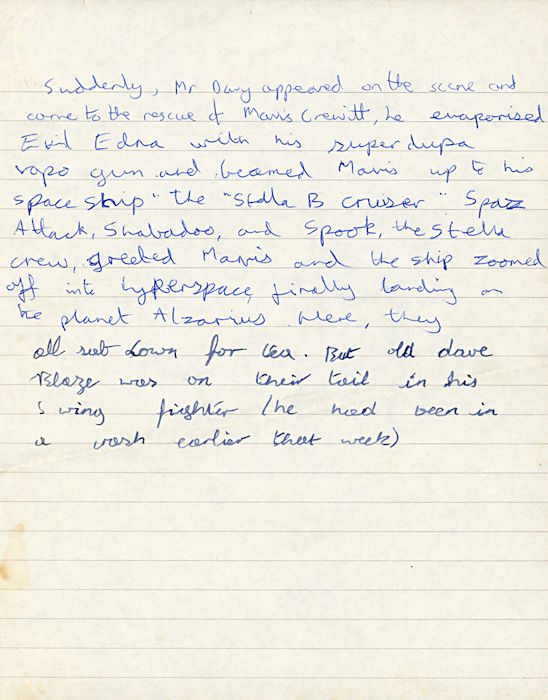 Suddenly, Mr Davy appeared on the scene and
came to the rescue of Mavis Crewitt, he evaporised
Evil Edna with his superdupa
vapo gun and beamed Mavis up to his
space ship "the "Stella B Cruiser" Spazz
Attack, Shabadoo, and Spook, the Stella
crew, greeted Mavis and the ship zoomed
off into hyperspace, finally landing on
the planet Alzarius. Here, they
all sat down for tea. But old dave
Blaze was on their tail in his
S wing fighter (he had been in
a rush earlier that week)